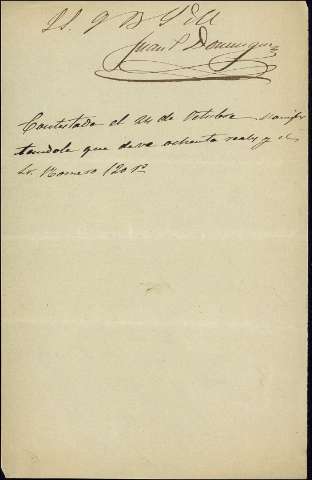 S. S. Q B S M
Juan P Dominguez
Contestada el 24 de Octubre manifes
tandole que deve ochenta reals y el
Sr. Romero 120 r.